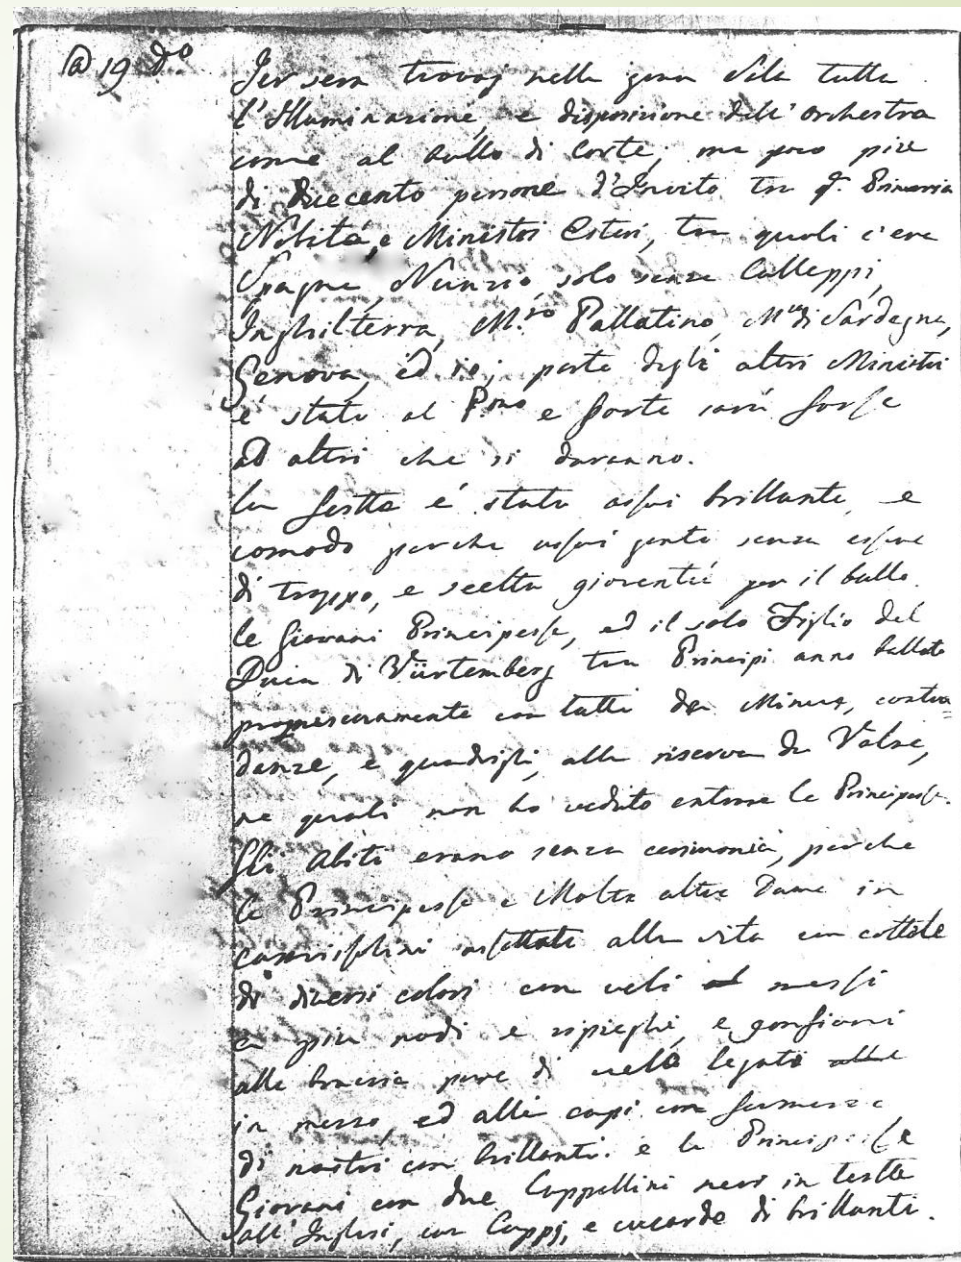 @ 19 do
Jer sera trovaj nella gran Sala tutta
l'Illuminazione, e disposizione dell'orchestra
come al ballo di Corte, ma poco più
di Duecento persone d'Invito tra q. Primaria
Nobiltà, e Ministri Esteri, tra quali c'era
Spagna, Nunzio, solo senza Calleppi,
Inghilterra, M.ro Pallatino, M. di Sardegna,
Genova, ed io; parte degli altri Ministri
è stata al Pmo e parte sarà forse
ad altri che si daranno.
La festta è stata assai brillante, e
comoda perche assai gente senza essere
di troppo, e scelta gioventù per il ballo.
le Giovani Principesse, ed il solo Figlio del
Duca di Vürtemberg tra Principi anno ballato
con tutti da Minuè, contra=
danze, e quadrigli, alla riserva da Valse,
ne quali non ho veduto entrare le Principesse.
Gli Abiti erano senza cerimonia, perche
le Principesse e Molte altre Dame in
assettati alla vita con cottole
di diversi colori con veli messi
a più nodi e ripieghi, e gonfiani
alle braccia pure di vello legato
in mezzo, ed alli capi con fermezze
di nastri con brillanti: e le Principesse
Giovani con due Cappellini neri in testta
all'Inglesi, con Cappj, e cucarde di brillanti.